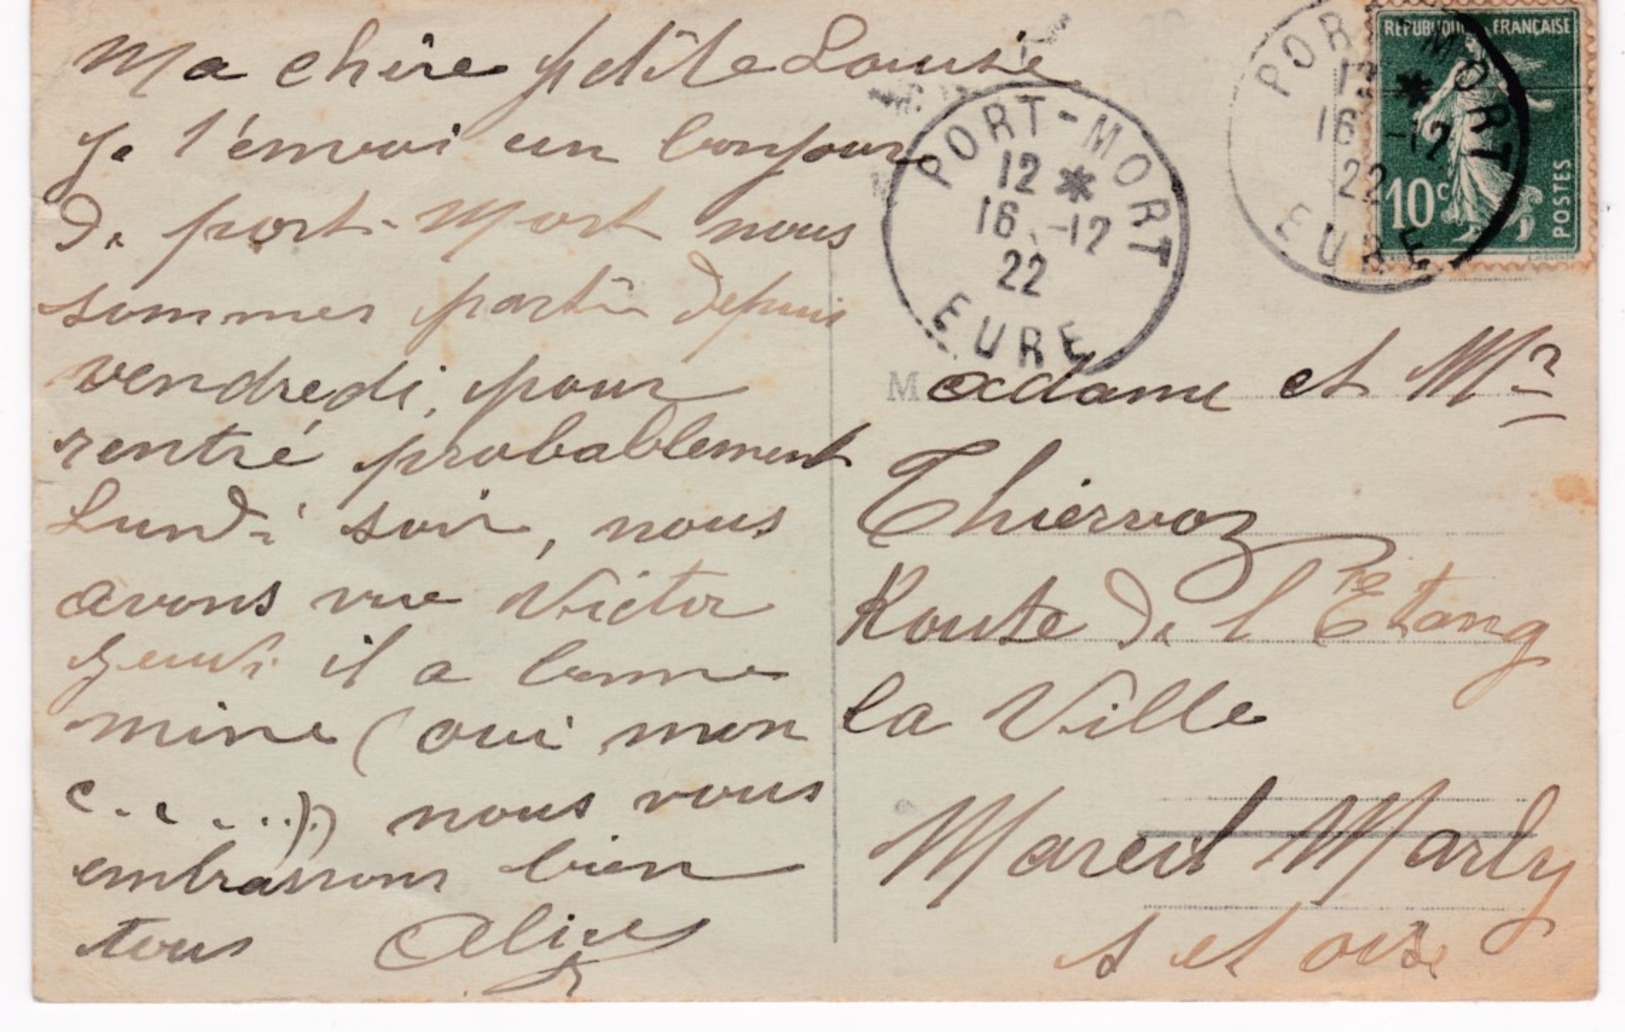 Ma chère ptite Louise
Je t'envoi un bonjour
De port-Mort nous
sommes partis Depuis
vendredi, pour
rentré probablement
Lundi soir, nous
avons vue Victor
Jeudi il a bonne
mine (oui mon
c.....)) nous vous
embrassons bien
tous Alice
PORT-MORT
12 *
16 -12
22
EURE
PORT-MORT
12 *
16 -12
22
EURE
REPUBLIQUE FRANÇAISE
10c
POSTES
Madame et Mr
Thiervoz
Route De l'Etang
la Ville
Mareil Marly
S et oise